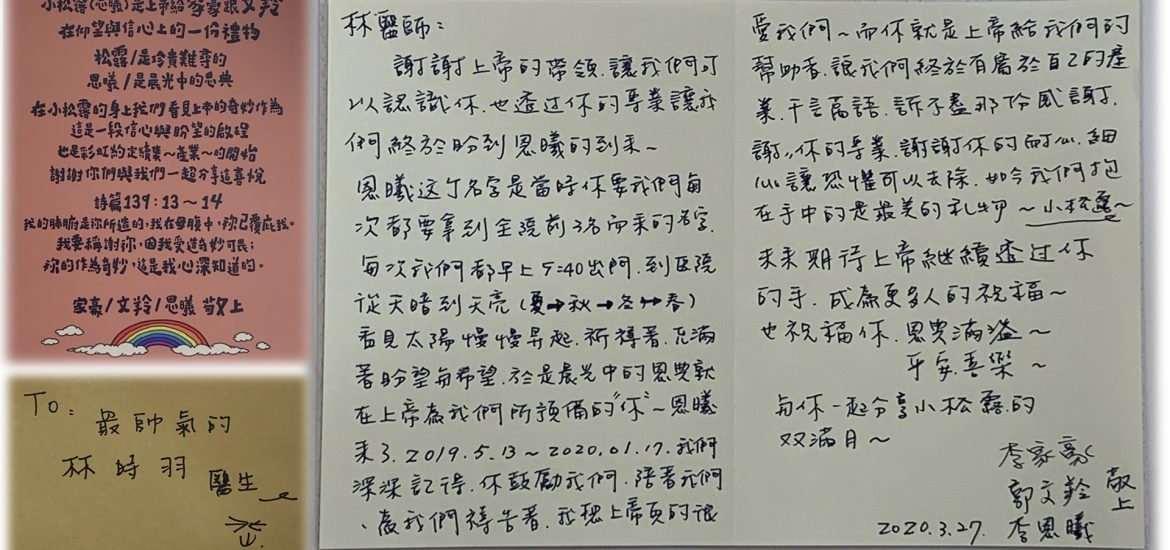 小松露(恩曦)是上帝給家豪跟文羚
在仰望與信心上的一份禮物
松露/是珍貴難尋的
恩曦/是晨光中的恩典
在小松露的身上我們看見上帝的奇妙作為
這是一段信心與盼望的啟程
也是彩虹約定續集~產業~的開始
謝謝你們與我們一起分享這喜悅
詩篇139：13～14
我的肺腑是祢所造的，我在母腹中，祢已覆庇我。
我要稱謝祢，因我受造奇妙可畏；
祢的作為奇妙，這是我心深知道的。
家豪/文羚/恩曦 敬上
To：
最帥氣的
林時羽
醫生
林醫師：
謝謝上帝的帶領，讓我們可
以認識你，也透过你的專業讓我
們終於盼到恩曦的到來~
恩曦这个名字是當時你要我們每
次都要拿到全院前3名而來的名字，
每次我們都早上5:40出門，到医院
從天暗到天亮(夏→秋→冬→春)
看見太陽慢慢昇起，祈禱著，充滿
著盼望与希望，於是晨光中的恩典就
在上帝為我們所預備的"你"~恩曦
來了，2019.5.13~2020.01.17，我們
深深記得，你鼓勵我們，陪著我們
、為我們禱告著，我想上帝真的很
愛我們~而你就是上帝給我們的
幫助者，讓我們終於有屬於自己的產
業，千言萬語，訴不盡那份感謝，
謝〃你的專業，謝謝你的耐心，細
心讓恐懼可以去除，如今我們抱
在手中的是最美的礼物~小松露~
未來期待上帝繼續透过你
的手，成為更多人的祝福~
也祝福你，恩典滿溢~
平安喜樂~
与你一起分享小松露的
双滿月~
李家豪
郭文羚 敬上
2020.3.27. 李恩曦